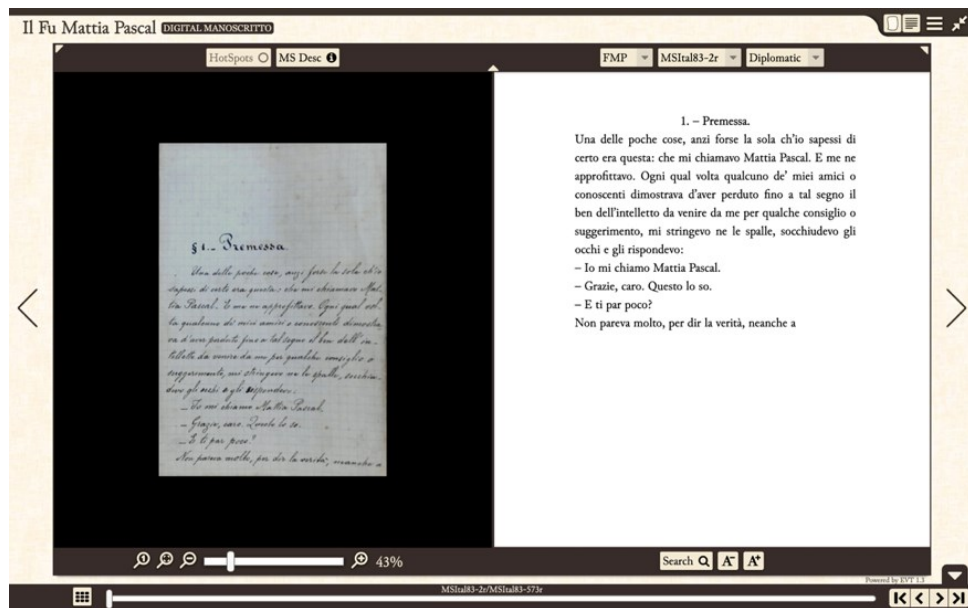 Il Fu Mattia Pascal DIGITAL MANOSCRITTO
HotSpots MS Desc
FMP MSItal83-2r Diplomatic
§ 1.- Premessa.
Una delle poche cose, anzi forse la sola ch'io
sapessi di certo era questa: che mi chiamavo Mat-
tia Pascal. E me ne approfittavo. Ogni qual vol-
ta qualcuno de' miei amici o conoscenti dimostra-
va d'aver perduto fino a tal segno il ben dell'in-
telletto da venire da me per qualche consiglio o
suggerimento, mi stringevo ne le spalle, socchiu-
devo gli occhi e gli rispondevo:
– Io mi chiamo Mattia Pascal.
– Grazie, caro. Questo lo so.
– E ti par poco?
Non pareva molto, per dir la verità, neanche a
1. – Premessa.
Una delle poche cose, anzi forse la sola ch'io sapessi di
certo era questa: che mi chiamavo Mattia Pascal. E me ne
approfittavo. Ogni qual volta qualcuno de' miei amici o
conoscenti dimostrava d'aver perduto fino a tal segno il
ben dell'intelletto da venire da me per qualche consiglio o
suggerimento, mi stringevo ne le spalle, socchiudevo gli
occhi e gli rispondevo:
– Io mi chiamo Mattia Pascal.
– Grazie, caro. Questo lo so.
– E ti par poco?
Non pareva molto, per dir la verità, neanche a
43%
Search A- A+
Powered by EVT 1.3
MSItal83-2r/MSItal83-573r